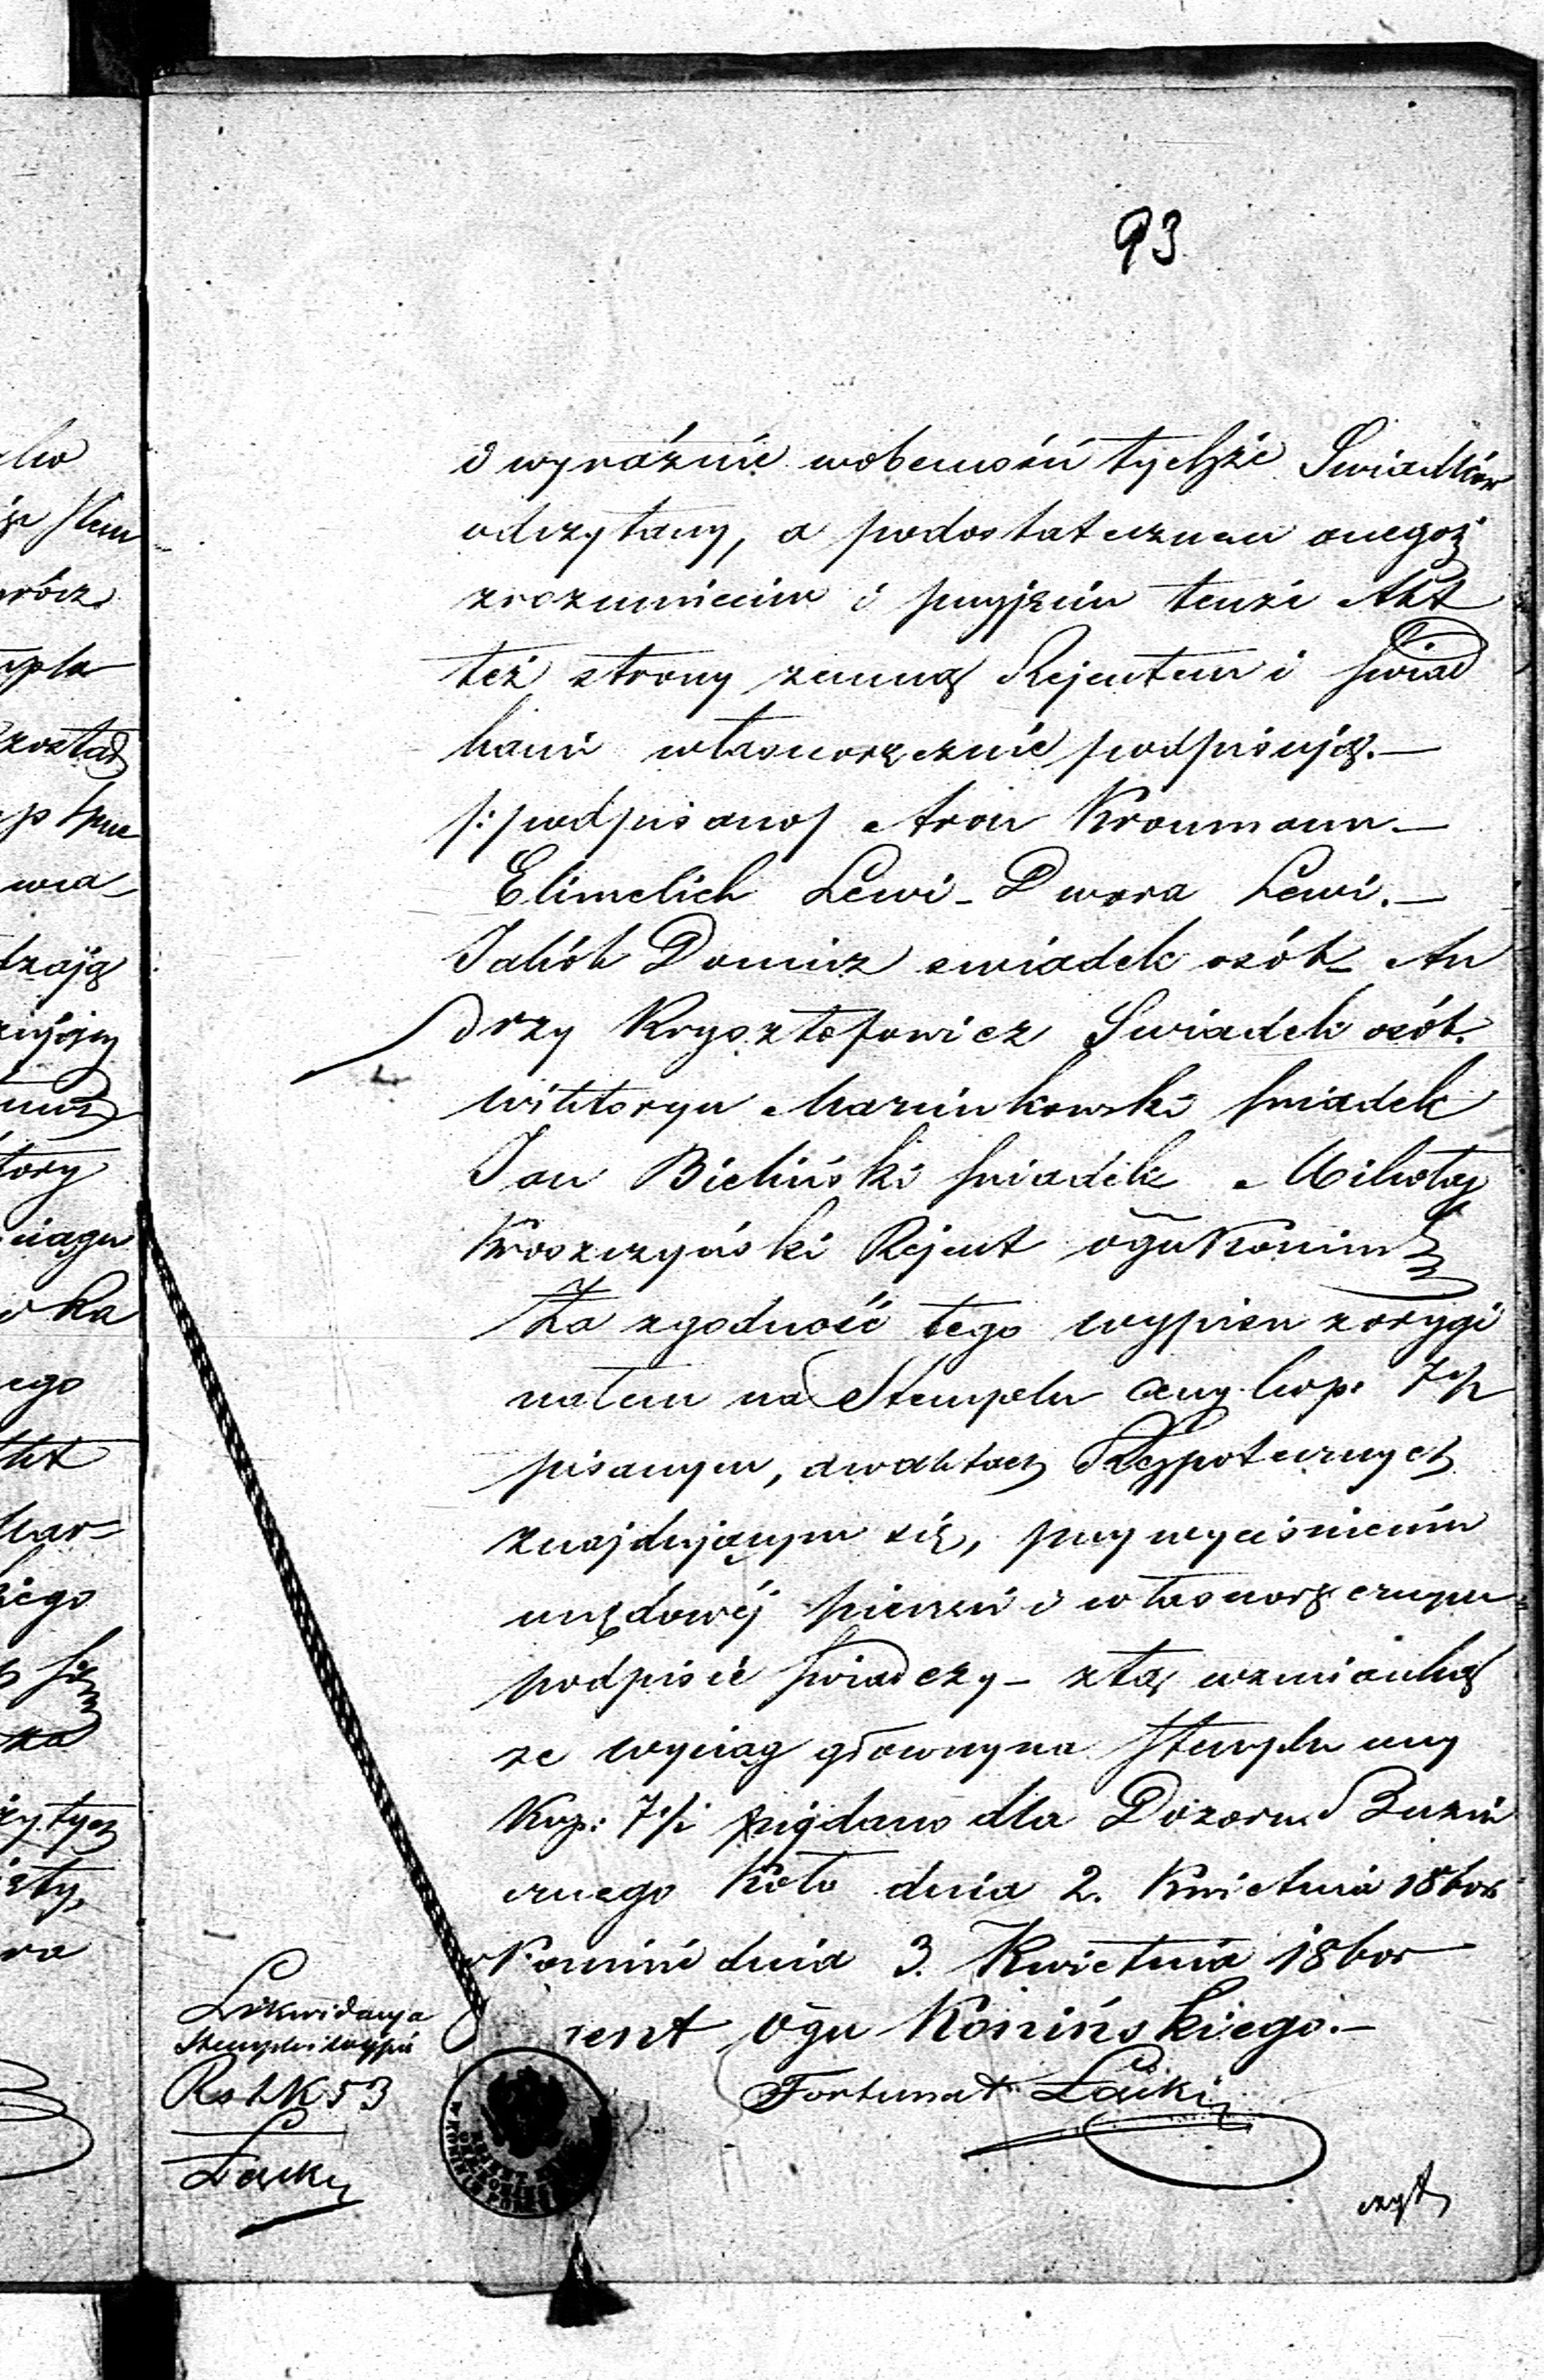 93
i wyraźnie wobecności tychże Swiadków
odczytany, a podostatecznem onegoż
zrozumieniu i przyjęciu tenże Akt
też strony zemną Rejentem i świad
kami własnoręcznie podpisują.—
/:podpisano/ Aron Kronmann.—
Elimelich Lewi – Dwora Lewi.—
Jakób Domicz swiadek osób – An
drzy Krysztofowicz Swiadek osób.
Wiktoryn Marcinkowski swiadek
Jan Bieliński swiadek Mikołaj
Kroszczyński Rejent Ogu Konin
Za zgodność tego wypisu zorygi
nałem na Stemplu ceny kop. 7½
pisanym, awaktach Hypotecznych
znajdującym się, przy wyciśnieniu
urzędowéj pieczęci i własnoręcznym
podpisie świadczy – ztą wzmianką
że wyciąg główny na stemplu ceny
Kop: 7½ wydano dla Dozoru Bużni
cznego Koło dnia 2. Kwietnia 186or
w Koninie dnia 3. Kwietnia 186or
rent Ogu Konińskiego.—
Fortunat Łącki
Likwidacya
Stempel i wypis
Rs 1 K 53
Łącki